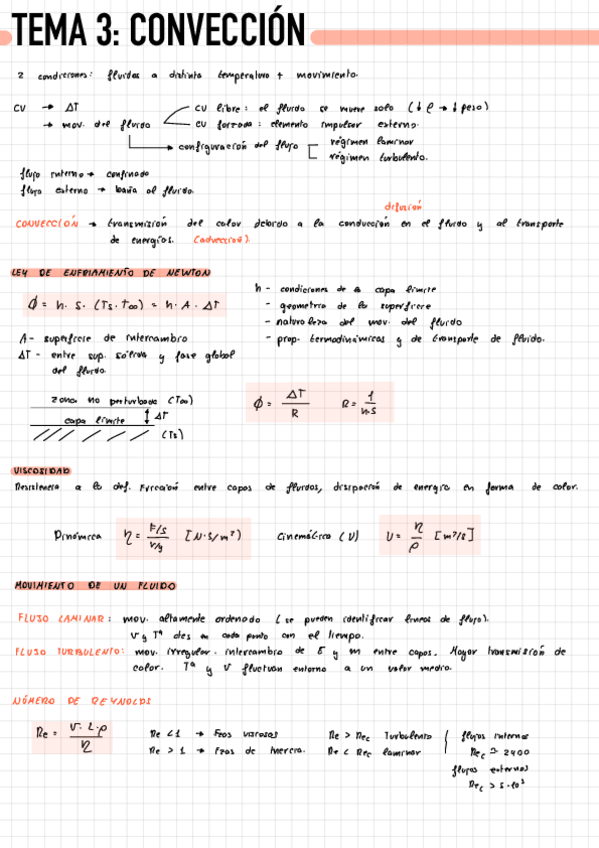 TEMA 3: CONVECCIÓN
2 condiciones: fluidos a distinta temperatura + movimiento.
CV → ΔT
→ mov. del fluido
CV libre: el fluido se mueve solo (↓ρ → ↓peso)
CV forzada: elemento impulsor externo.
→ configuración del flujo
régimen laminar
régimen turbulento.
flujo interno → confinado
flujo externo → baña al fluido.
difusión
CONVECCIÓN → transmisión del calor debido a la conducción en el fluido y al transporte
de energías. (advección)
LEY DE ENFRIAMIENTO DE NEWTON
ϕ = h. S. (Ts - T∞) = h. A. ΔT
h - condiciones de la capa límite
- geometría de la superficie
- naturaleza del mov. del fluido
- prop. termodinámicas y de transporte de fluido.
A - superficie de intercambio
ΔT - entre sup. sólida y fase global
del fluido.
zona no perturbada (T∞)
capa límite ΔT
(Ts)
ϕ = ΔT / R R = 1 / h·S
VISCOSIDAD
Resistencia a la def. Fricción entre capas de fluidos, disipación de energía en forma de calor.
Dinámica η = F/S / v/y [N·S/m²] Cinemática (υ) υ = η / ρ [m²/s]
MOVIMIENTO DE UN FLUIDO
FLUJO LAMINAR: mov. altamente ordenado (se pueden identificar líneas de flujo).
v y Tª ctes en cada punto con el tiempo.
FLUJO TURBULENTO: mov. irregular. intercambio de E y m entre capas. Mayor transmisión de
calor. Tª y v fluctúan entorno a un valor medio.
NÚMERO DE REYNOLDS
Re = v·L·ρ / η
Re < 1 → Fzas viscosas
Re > 1 → Fzas de inercia.
Re > Rec Turbulento
Re < Rec laminar
flujos internos
Rec ≃ 2400
flujos externos
Rec > 5·10⁵